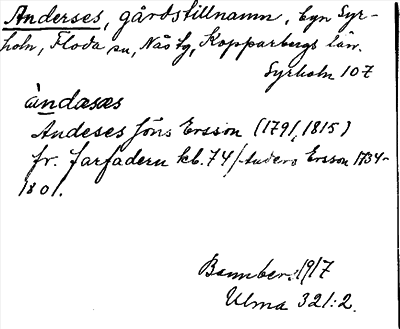 Anderses, gårdstillnamn, byn Syr-
holn, Floda sn, Nås tg, Kopparbergs län.
Syrholn 107
àndasæs
Andeses Jöns Ersson (1791, 1815)
fr. farfadern kb. 74/Anders Ersson 1734-
1801.
1917
Ulma 321:2.